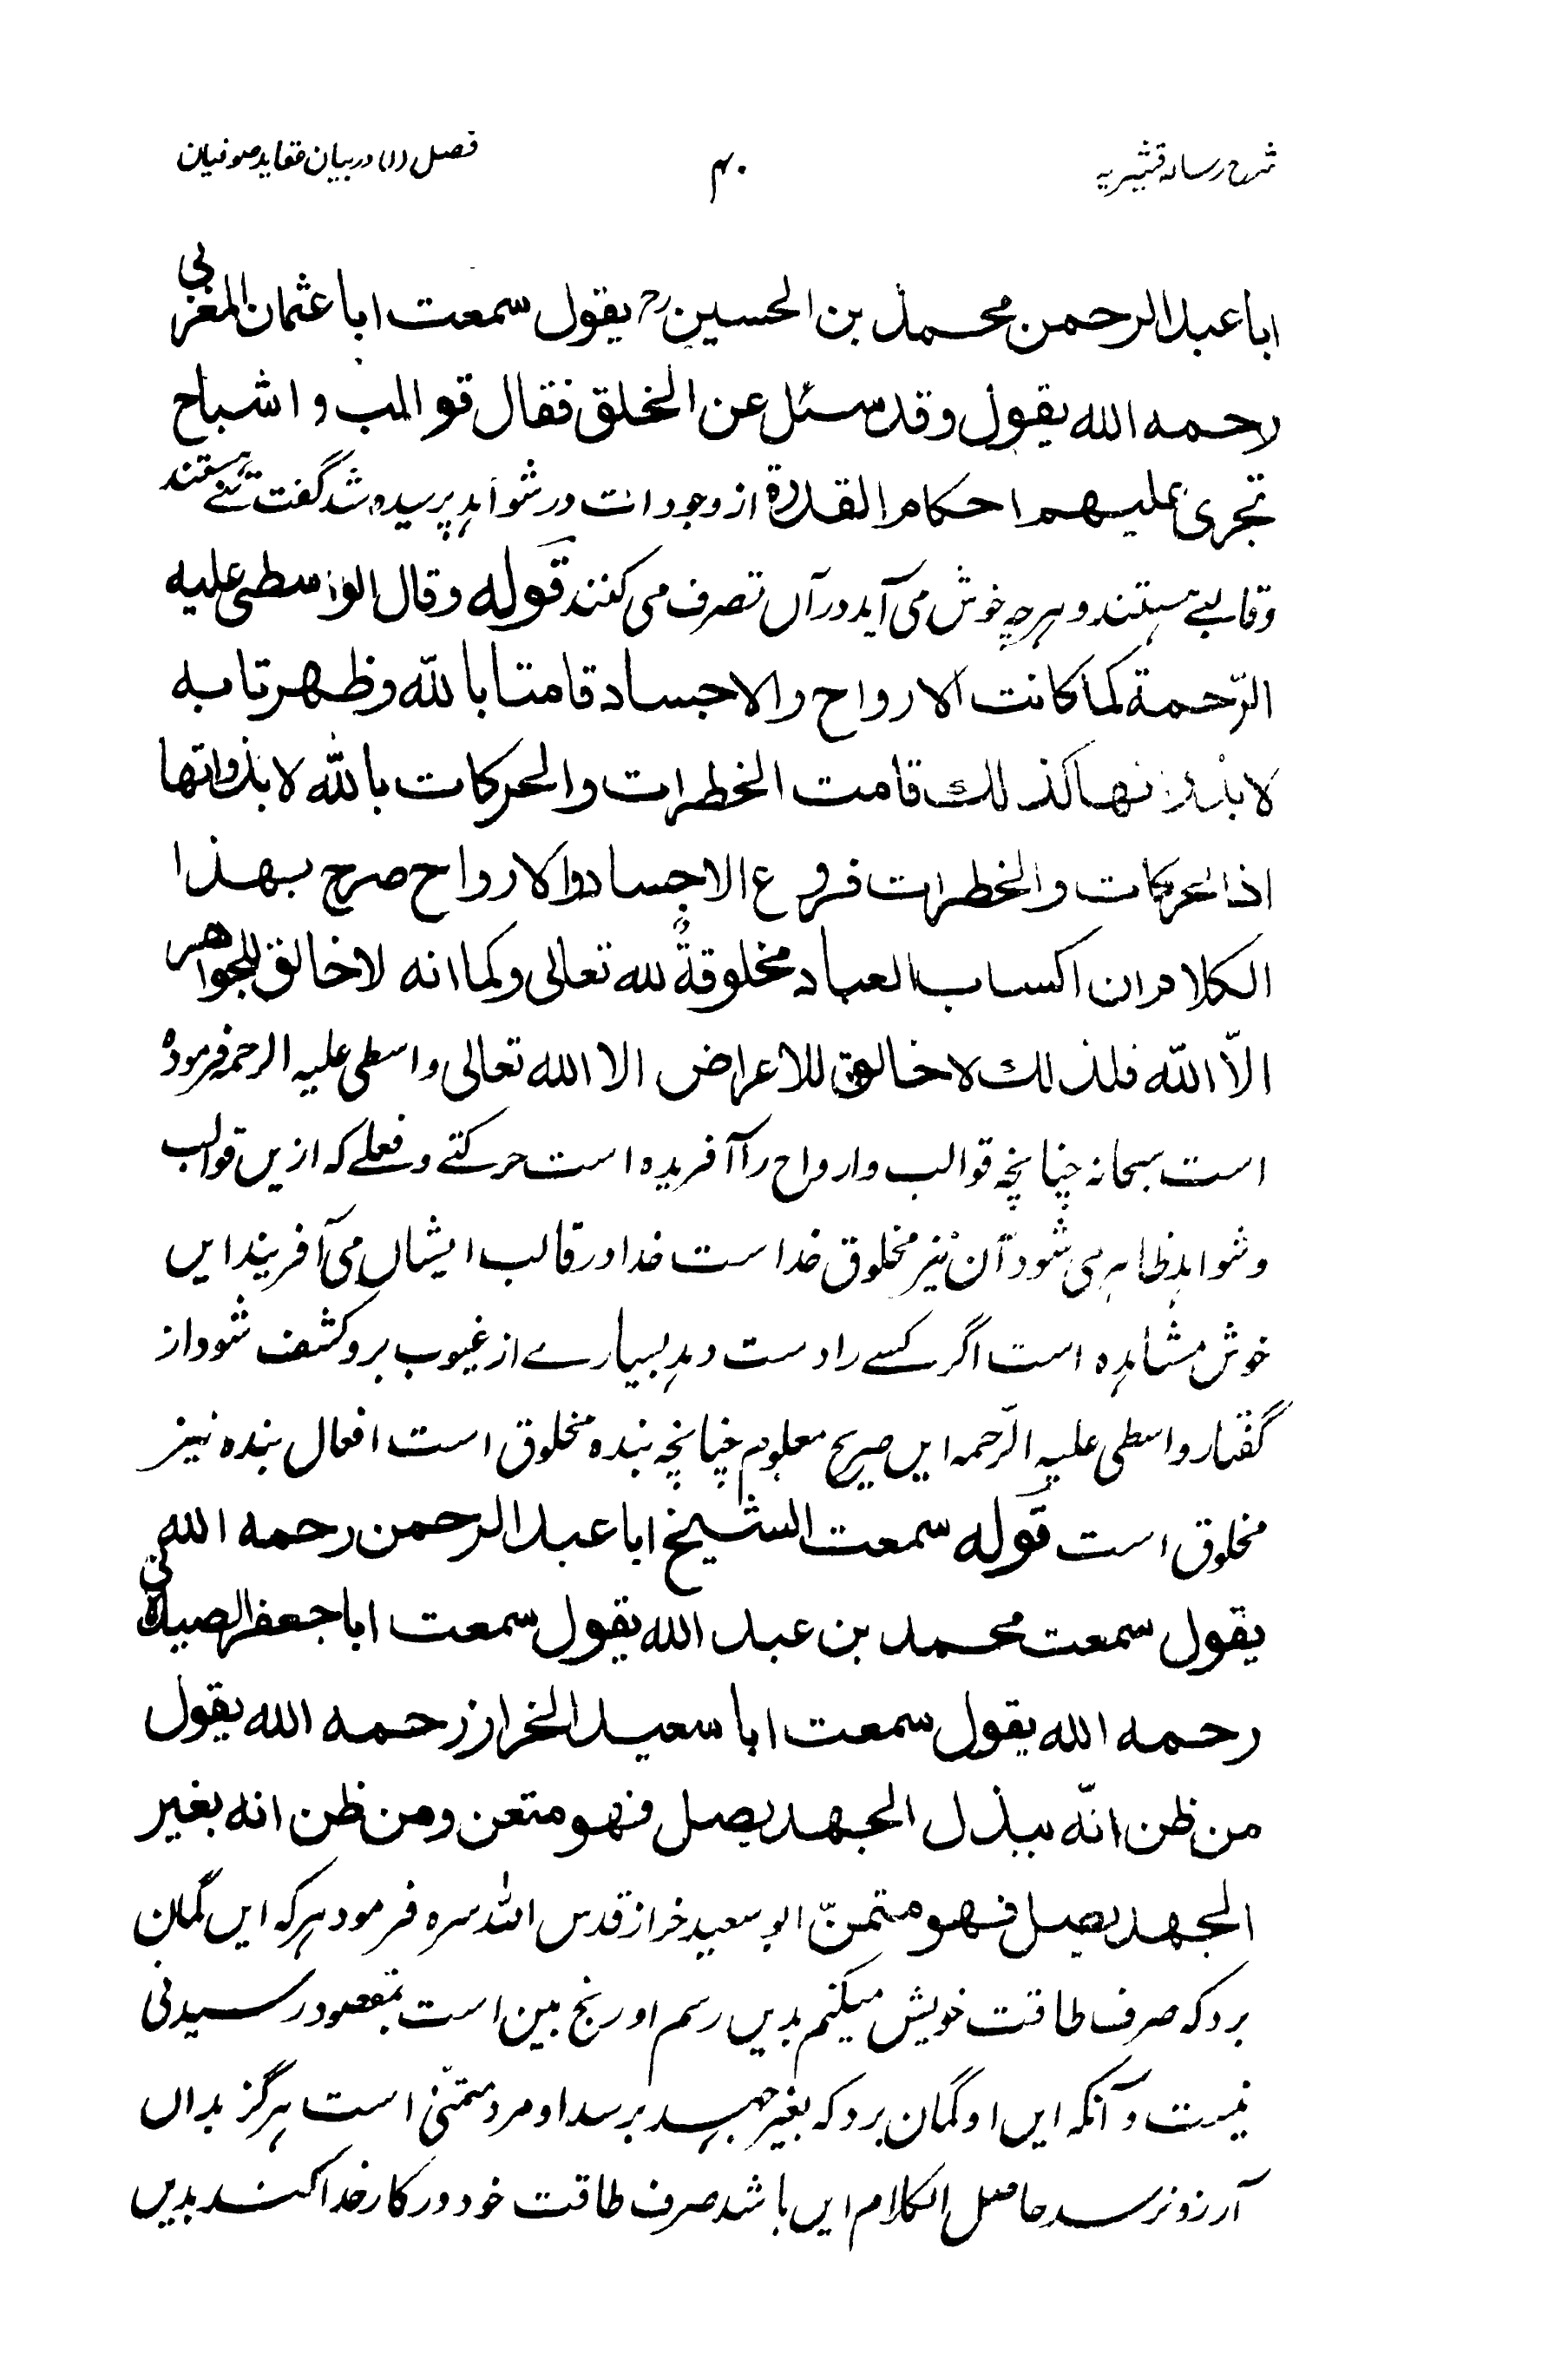 شرح رسالہ قشیریہ ۴۰ فصل (۱) در بیان عقاید صوفیان
ابا عبد الرحمن محمد بن الحسین رح یقول سمعت ابا عثمان المغربی
رحمه الله یقول وقد سئل عن الخلق فقال قوالب و اشباح
تجری علیهم احکام القدرة از وجودات در شواہد پرسیدہ شد گفت تنے ہستند
وقالبے ہستند وہرچہ خوش می آید در آں تصرف می کنند قوله وقال الواسطی علیه
الرّحمة کما کانت الارواح والاجساد قامتا باللّٰه وظهرتا به
لا بذواتها کذلك قامت الخطرات والحرکات باللّٰه لا بذواتها
اذ الحرکات والخطرات فروع الاجساد والارواح صرح بهذا
الکلام ان اکساب العباد مخلوقةٌ لله تعالی وکما انه لا خالق للجواهر
الّا اللّٰه فلذلك لا خالق للاعراض الا الله تعالی واسطی علیہ الرحمہ فرمودہ
است سبحانہ چنانچہ قوالب وارواح را آفریدہ است حرکتے وفعلے کہ ازیں قوالب
وشواہد ظاہر می شود آن نیز مخلوق خداست خدا در قالب ایشاں می آفریند ایں
خوش مشاہدہ است اگر کسے را دست دہد بسیارے از غیوب برو کشف شود از
گفتار واسطی علیہ الرّحمہ ایں صریح معلوم چنانچہ بندہ مخلوق است افعال بندہ نیز
مخلوق است قوله سمعت الشیخ ابا عبد الرحمن رحمه الله
یقول سمعت محمد بن عبد الله یقول سمعت ابا جعفر الصیدلانی
رحمه الله یقول سمعت ابا سعید الخراز رحمه الله یقول
من ظن انّه ببذل الجهد یصل فهو متعن ومن ظن انه بغیر
الجهد یصل فهو متمنّ ابو سعید خراز قدس اللّٰہ سرہ فرمود ہرکہ ایں گمان
برد کہ صرف طاقت خویش میکنم بدیں رسم او رنج بین است بمقصود رسیدنی
نیست و آنکہ ایں او گمان برد کہ بغیر جہد برسد او مرد متمنّی است ہرگز بداں
آرزو نرسد حاصل الکلام ایں باشد صرف طاقت خود در کار خدا کند بدیں